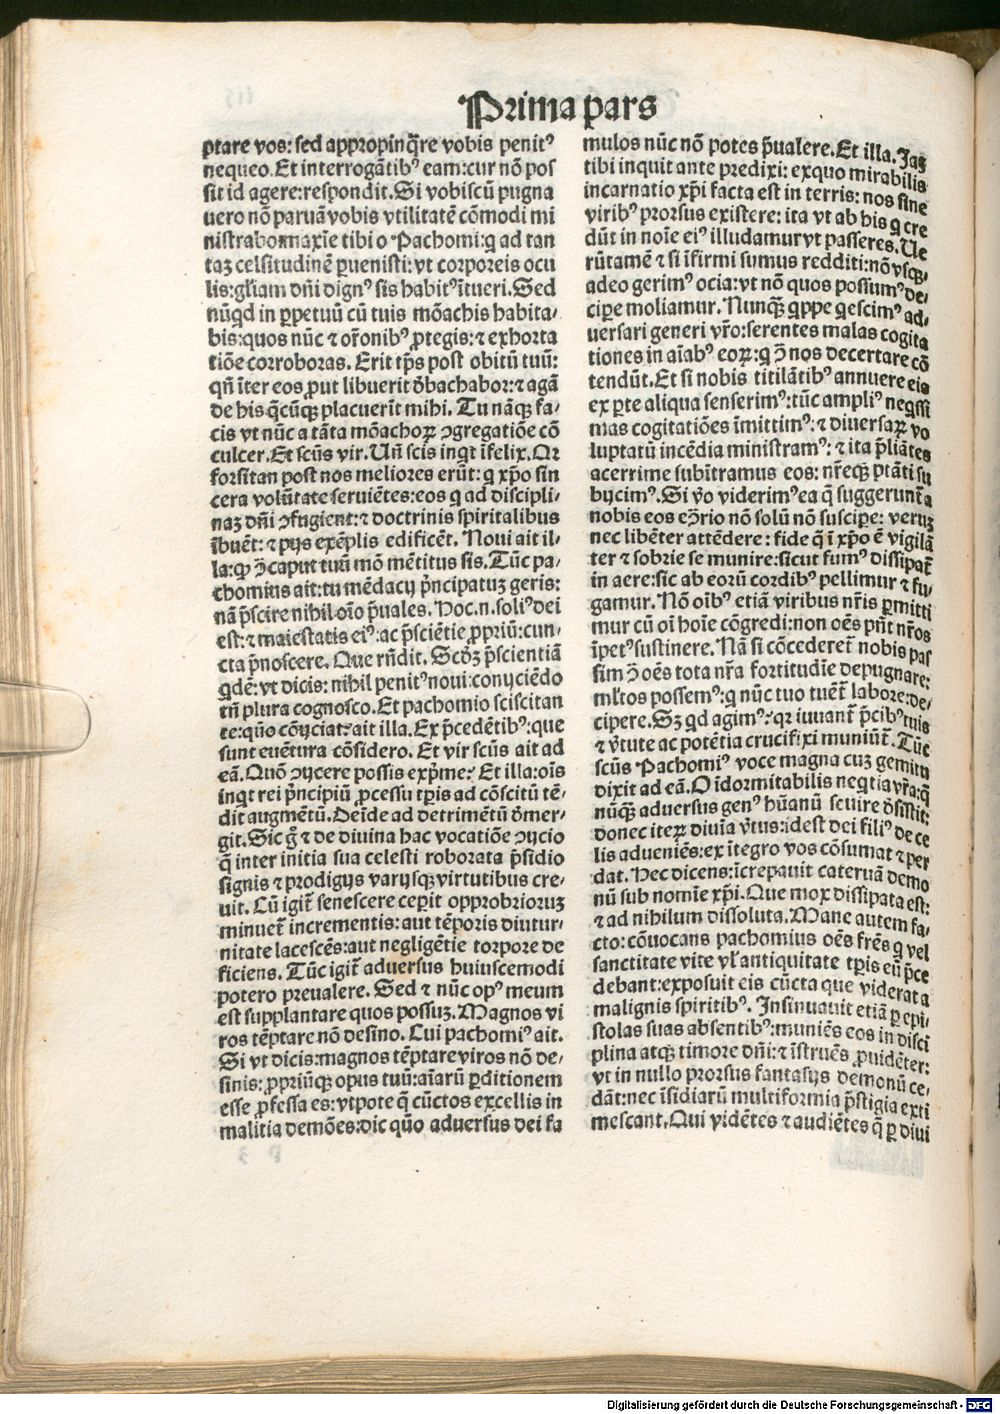 Prima pars
ptare vos: sed appropinq̃re vobis penitꝰ
nequeo. Et interrogãtibꝰ eam: cur nõ pos
sit id agere: respondit. Si vobiscũ pugna
uero nõ paruã vobis vtilitatẽ cõmodi mi
nistrabo: maxĩe tibi o Pachomi: q ad tan
taʒ celsitudinẽ ꝑuenisti: vt corporeis ocu
lis: gl̃iam dñi dignꝰ sis habitꝰ ĩtueri. Sed
nũqd in ꝑpetuũ cũ tuis mõachis habita⸗
bis: quos nũc ⁊ or̃onibꝰ ꝓtegis: ⁊ exhorta
tiõe corroboras. Erit tp̃s post obitũ tuũ:
qñ ĩter eos ꝓut libuerit d̃bachabor: ⁊ agã
de his q̃cũqꝫ placuerĩt mihi. Tu nãqꝫ fa⸗
cis vt nũc a tãta mõachoꝝ ꝯgregatiõe cõ
culcer. Et scũs vir. Uñ scis inqt ĩfelix. Or
forsitan post nos meliores erũt: q xp̃o sin
cera volũtate seruiẽtes: eos q ad discipli⸗
naʒ dñi ꝯfugient: ⁊ doctrinis spiritalibus
ĩbuẽt: ⁊ pijs exẽplis edificẽt. Noui ait il⸗
la: ꝙ ꝯ̃ caput tuũ mõ mẽtitus sis. Tũc pa⸗
chomius ait: tu mẽdacij p̃ncipatuʒ geris:
nã p̃scire nihil oĩo p̃uales. Hoc .n. soliꝰ dei
est: ⁊ maiestatis eiꝰ: ac p̃sciẽtie ꝓpriũ: cun⸗
cta p̃noscere. Que rñdit. Scd̃ʒ p̃scientiã
qdẽ: vt dicis: nihil penitꝰ noui: conijciẽdo
tñ plura cognosco. Et pachomio sciscitan
te: quõ cõijciat: ait illa. Ex p̃cedẽtibꝰ: que
sunt euẽtura cõsidero. Et vir scũs ait ad
eã. Quõ ꝯijcere possis exp̃me: Et illa: oĩs
inqt rei p̃ncipiũ ꝓcessu tꝑis ad cõscitũ tẽ⸗
dit augmẽtũ. Deĩde ad detrimẽtũ d̃mer⸗
git. Sic g̃ ⁊ de diuina hac vocatiõe ꝯijcio
q̃ inter initia sua celesti roborata p̃sidio
signis ⁊ prodigijs varijsqꝫ virtutibus cre⸗
uit. Cũ igit̃ senescere ceperit opprobrioruʒ
minuet̃ incrementis: aut tẽporis diutur⸗
nitate lacescẽs: aut negligẽtie torpore de
ficiens. Tũc igit̃ aduersus huiuscemodi
potero preualere. Sed ⁊ nũc opꝰ meum
est supplantare quos possuʒ. Magnos vi
ros tẽptare nõ desino. Cui pachomiꝰ ait.
Si vt dicis: magnos tẽptare viros nõ de⸗
sinis: ꝓpriũqꝫ opus tuũ: aĩarũ ꝑditionem
esse ꝓfessa es: vtpote q̃ cũctos excellis in
malitia demões: dic quõ aduersus dei fa
mulos nũc nõ potes p̃ualere. Et illa. Jaʒ
tibi inquit ante predixi: exquo mirabilis
incarnatio xp̃i facta est in terris: nos sine
viribꝰ prorsus existere: ita vt ab his q cre
dũt in noĩe eiꝰ illudamur vt passeres. Ue
rũtamẽ ⁊ si ĩfirmi sumus redditi: nõ vsqꝫ
adeo gerimꝰ ocia: vt nõ quos possumꝰ de⸗
ciꝑe moliamur. Nunqꝫ qppe qescimꝰ ad⸗
uersari generi vr̃o: serentes malas cogita
tiones in aĩabꝰ eoꝝ: q ꝯ̃ nos decertare cõ
tendũt. Et si nobis titilãtibꝰ annuere eis
ex ꝑte aliqua senserimꝰ: tũc ampliꝰ neqssi
mas cogitatiões ĩmittimꝰ: ⁊ diuersaꝝ vo
luptatũ incẽdia ministramꝰ: ⁊ ita p̃liãtes
acerrime subĩtramus eos: nr̃eqꝫ ptãti su
bijcimꝰ. Si ṽo viderimꝰ ea q̃ suggerunt̃ a
nobis eos ecõtrario nõ solũ nõ suscipe: veruʒ
nec libẽter attẽdere: fide q̃ ĩ xp̃o ẽ vigilã
ter ⁊ sobrie se munire: sicut fumꝰ dissipat̃
in aere: sic ab eorũ cordibꝰ pellimur ⁊ fu⸗
gamur. Nõ oĩbꝰ etiã viribus nr̃is ꝑmitti
mur cũ oĩ hoĩe cõgredi: non oẽs pñt nr̃os
ĩpetꝰ sustinere. Nã si cõcederet̃ nobis pas
sim ꝯ̃ oẽs tota nr̃a fortitudĩe depugnare:
ml̃tos possemꝰ: q nũc tuo tuẽt̃ labore: de⸗
cipere. Sʒ qd agimꝰ: qr iuuant̃ p̃cibꝰ tuis
⁊ ṽtute ac potẽtia crucifixi muniũt̃. Tũc
scũs Pachomiꝰ voce magna cuʒ gemitu
dixit ad eã. O ĩdormitabilis neqtia vr̃a: q̃
nũqꝫ aduersus genꝰ hũanũ seuire d̃sistit:
donec iteꝝ diuĩa ṽtus: idest dei filiꝰ de ce
lis adueniẽs: ex ĩtegro vos cõsumat ⁊ per
dat. Hec dicens: ĩcrepauit cateruã demo
nũ sub nomĩe xp̃i. Que mox dissipata est:
⁊ ad nihilum dissoluta. Mane autem fa⸗
cto: cõuocans pachomius oẽs fr̃es q vel
sanctitate vite vl̃ antiquitate tꝑis eũ p̃ce
debant: exposuit eis cũcta que viderat a
malignis spiritibꝰ. Jnsinuauit etiã ꝑ epi⸗
stolas suas absentibꝰ: muniẽs eos in disci
plina atqꝫ timore dñi: ⁊ ĩstruẽs ꝓuidẽter:
vt in nullo prorsus fantasijs demonũ ce⸗
dãt: nec ĩsidiarũ multiformia p̃stigia exti
mescant. Qui vidẽtes ⁊ audiẽtes q̃ ꝑ diui
Digitalisierung gefördert durch die Deutsche Forschungsgemeinschaft - DFG